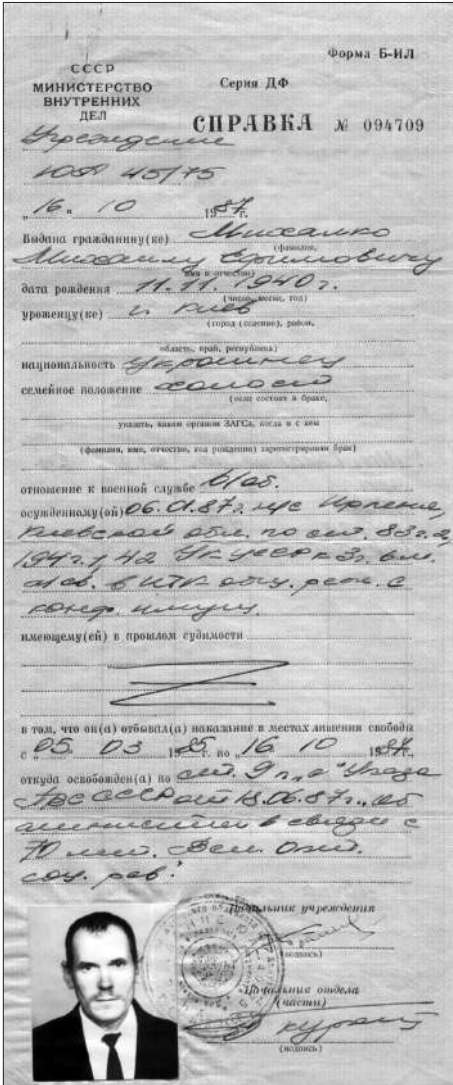 Форма Б-ИЛ
СССР
МИНИСТЕРСТВО
ВНУТРЕННИХ
ДЕЛ
Серия ДФ
СПРАВКА № 094709
Учреждение
ЮЯ 45/75
„16“ 10 1987г.
Выдана гражданину(ке) Михалко
(фамилия,
Михаилу Ефимовичу
имя и отчество)
дата рождения 11.11.1940г.
(число, месяц, год)
уроженцу(ке) г. Киев
(город (селение), район,
область, край, республика)
национальность Украинец
семейное положение холост
(если состоит в браке,
указать, каким органом ЗАГСа, когда и с кем
(фамилия, имя, отчество, год рождения) зарегистрирован брак)
отношение к военной службе в/об.
осужденному(ой) 06.01.87г. н/с Ирпеня,
Киевской обл. по ст. 83 г. 2,
194 г. 1, 42 УК УССР к 3г. 6 м.
в ИТК общ. реж. с
конф. имущ.
имеющему(ей) в прошлом судимости
в том, что он(а) отбывал(а) наказание в местах лишения свободы
с „05. 03 1985г. по „16 10 1987г.,
откуда освобожден(а) по ст. 9 п. „а“ Указа
ПВС СССР от 18.06.87г. „об
амнистии в связи с
70 лет. Вел. Окт.
соц. рев.“
Начальник учреждения
(подпись)
Начальник отдела
(части)
(подпись)